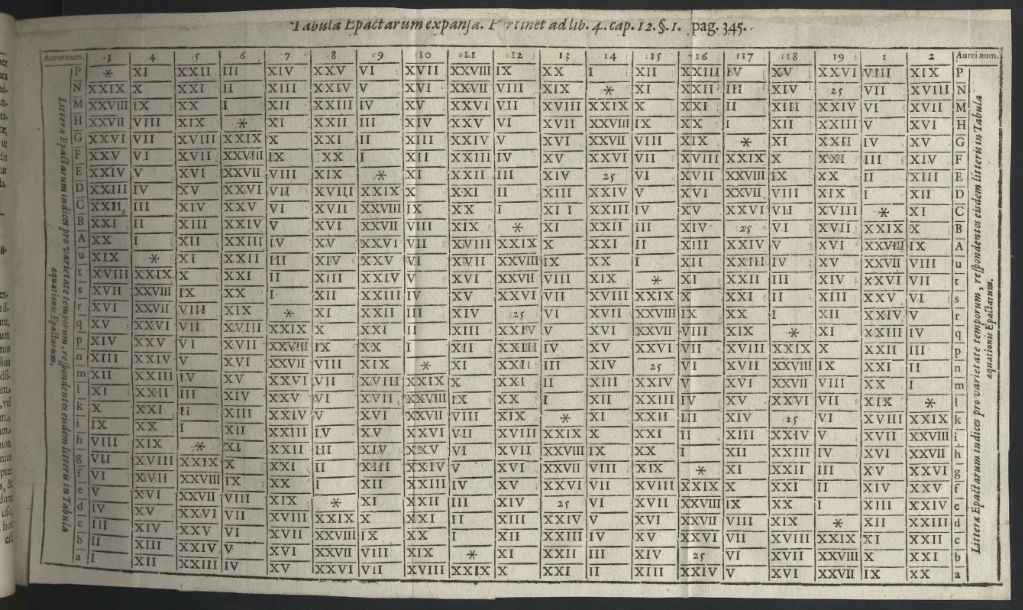 Tabula Epactarum expansa. Pertinet ad lib. 4. cap. 12. §. 1. pag. 345.
Aurei num. 3 4 5 6 7 8 9 10 11 12 13 14 15 16 17 18 19 1 2 Aurei num.
P * XI XXII III XIV XXV VI XVII XXVIII IX XX I XII XXIII IV XV XXVI VIII XIX P
N XXIX X XXI II XIII XXIV V XVI XXVII VIII XIX * XI XXII III XIV 25 VII XVIII N
M XXVIII IX XX I XII XXIII IV XV XXVI VII XVIII XXIX X XXI II XIII XXIV VI XVII M
H XXVII VIII XIX * XI XXII III XIV XXV VI XVII XXVIII IX XX I XII XXIII V XVI H
G XXVI VII XVIII XXIX X XXI II XIII XXIV V XVI XXVII VIII XIX * XI XXII IV XV G
F XXV VI XVII XXVIII IX XX I XII XXIII IV XV XXVI VII XVIII XXIX X XXI III XIV F
E XXIV V XVI XXVII VIII XIX * XI XXII III XIV 25 VI XVII XXVIII IX XX II XIII E
D XXIII IV XV XXVI VII XVIII XXIX X XXI II XIII XXIV V XVI XXVII VIII XIX I XII D
C XXII III XIV XXV VI XVII XXVIII IX XX I XII XXIII IV XV XXVI VII XVIII * XI C
B XXI II XIII XXIV V XVI XXVII VIII XIX * XI XXII III XIV 25 VI XVII XXIX X B
A XX I XII XXIII IV XV XXVI VII XVIII XXIX X XXI II XIII XXIV V XVI XXVIII IX A
u XIX * XI XXII III XIV XXV VI XVII XXVIII IX XX I XII XXIII IV XV XXVII VIII u
t XVIII XXIX X XXI II XIII XXIV V XVI XXVII VIII XIX * XI XXII III XIV XXVI VII t
s XVII XXVIII IX XX I XII XXIII IV XV XXVI VII XVIII XXIX X XXI II XIII XXV VI s
r XVI XXVII VIII XIX * XI XXII III XIV 25 VI XVII XXVIII IX XX I XII XXIV V r
q XV XXVI VII XVIII XXIX X XXI II XIII XXIV V XVI XXVII VIII XIX * XI XXIII IV q
p XIV XXV VI XVII XXVIII IX XX I XII XXIII IV XV XXVI VII XVIII XXIX X XXII III p
n XIII XXIV V XVI XXVII VIII XIX * XI XXII III XIV 25 VI XVII XXVIII IX XXI II n
m XII XXIII IV XV XXVI VII XVIII XXIX X XXI II XIII XXIV V XVI XXVII VIII XX I m
l XI XXII III XIV XXV VI XVII XXVIII IX XX I XII XXIII IV XV XXVI VII XIX * l
k X XXI II XIII XXIV V XVI XXVII VIII XIX * XI XXII III XIV 25 VI XVIII XXIX k
i IX XX I XII XXIII IV XV XXVI VII XVIII XXIX X XXI II XIII XXIV V XVII XXVIII i
h VIII XIX * XI XXII III XIV XXV VI XVII XXVIII IX XX I XII XXIII IV XVI XXVII h
g VII XVIII XXIX X XXI II XIII XXIV V XVI XXVII VIII XIX * XI XXII III XV XXVI g
f VI XVII XXVIII IX XX I XII XXIII IV XV XXVI VII XVIII XXIX X XXI II XIV XXV f
e V XVI XXVII VIII XIX * XI XXII III XIV 25 VI XVII XXVIII IX XX I XIII XXIV e
d IV XV XXVI VII XVIII XXIX X XXI II XIII XXIV V XVI XXVII VIII XIX * XII XXIII d
c III XIV XXV VI XVII XXVIII IX XX I XII XXIII IV XV XXVI VII XVIII XXIX XI XXII c
b II XIII XXIV V XVI XXVII VIII XIX * XI XXII III XIV 25 VI XVII XXVIII X XXI b
a I XII XXIII IV XV XXVI VII XVIII XXIX X XXI II XIII XXIV V XVI XXVII IX XX a
Litteræ Epactarum indices pro varietate temporum, respondentes eisdem litteris in Tabula
æquationis Epactarum.
Litteræ Epactarum indices pro varietate temporum, respondentes eisdem litteris in Tabula
æquationis Epactarum.